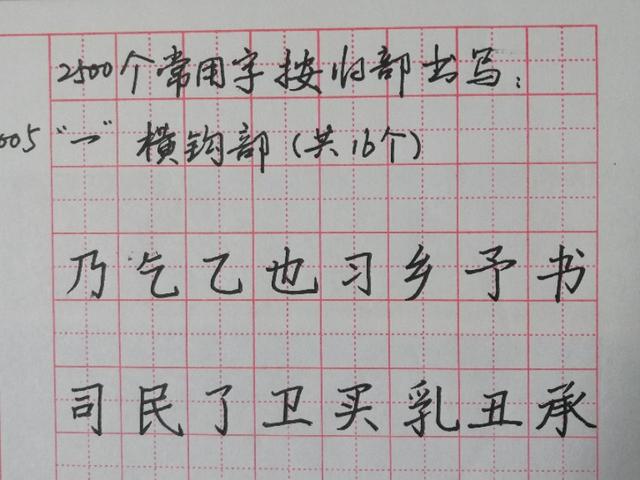 2500个常用字按归部书写:
005 "一" 横钩部(共16个)
乃乞乙也习乡予书
司民了卫买乳丑承